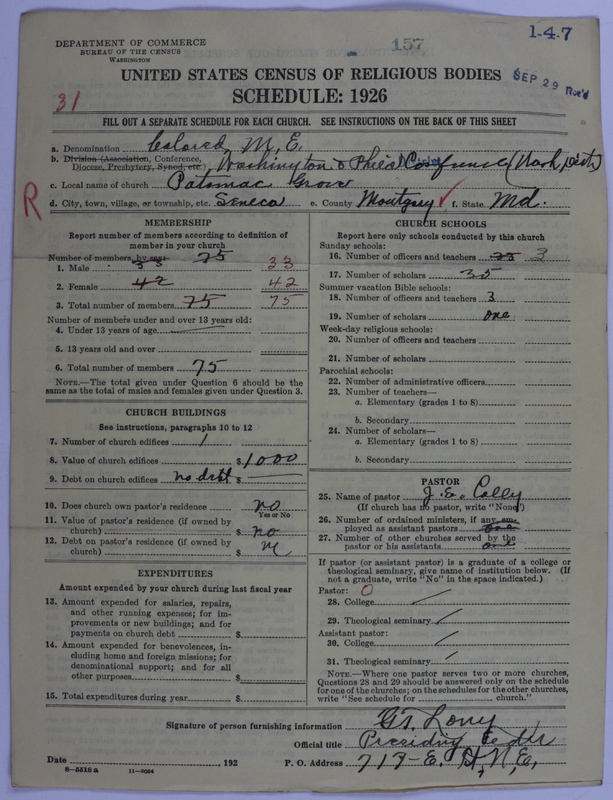 1-4-7
DEPARTMENT OF COMMERCE
BUREAU OF THE CENSUS
WASHINGTON
157
UNITED STATES CENSUS OF RELIGIOUS BODIES
SEP 29 Rec'd
SCHEDULE: 1926
31
FILL OUT A SEPARATE SCHEDULE FOR EACH CHURCH. SEE INSTRUCTIONS ON THE BACK OF THIS SHEET
a. Denomination Colored M. E.
b. Division (Association), Conference, Diocese, Presbytery, Synod, etc.) Washington & Phila Conference (Wash, Distr)
c. Local name of church Patomac Grove
R
d. City, town, village, or township, etc. Seneca e. County Montgmy f. State Md.
MEMBERSHIP
Report number of members according to definition of member in your church
Number of members, by sex: 75
1. Male 33 33
2. Female 42 42
3. Total number of members 75 75
Number of members under and over 13 years old:
4. Under 13 years of age
5. 13 years old and over
6. Total number of members 75
NOTE.—The total given under Question 6 should be the same as the total of males and females given under Question 3.
CHURCH BUILDINGS
See instructions, paragraphs 10 to 12
7. Number of church edifices 1
8. Value of church edifices $1000
9. Debt on church edifices no debt $
10. Does church own pastor's residence no
Yes or No
11. Value of pastor's residence (if owned by church) $ no
12. Debt on pastor's residence (if owned by church) $
EXPENDITURES
Amount expended by your church during last fiscal year
13. Amount expended for salaries, repairs, and other running expenses; for improvements or new buildings; and for payments on church debt $
14. Amount expended for benevolences, including home and foreign missions; for denominational support; and for all other purposes $
15. Total expenditures during year $
CHURCH SCHOOLS
Report here only schools conducted by this church
Sunday schools:
16. Number of officers and teachers 3
17. Number of scholars 35
Summer vacation Bible schools:
18. Number of officers and teachers 3
19. Number of scholars one
Week-day religious schools:
20. Number of officers and teachers
21. Number of scholars
Parochial schools:
22. Number of administrative officers
23. Number of teachers—
a. Elementary (grades 1 to 8)
b. Secondary
24. Number of scholars—
a. Elementary (grades 1 to 8)
b. Secondary
PASTOR
25. Name of pastor J. E. Colly
(If church has no pastor, write "None")
26. Number of ordained ministers, if any, employed as assistant pastors
27. Number of other churches served by the pastor or his assistants one
If pastor (or assistant pastor) is a graduate of a college or theological seminary, give name of institution below. (If not a graduate, write "No" in the space indicated.)
Pastor: 0
28. College
29. Theological seminary
Assistant pastor:
30. College
31. Theological seminary
NOTE.—Where one pastor serves two or more churches, Questions 28 and 29 should be answered only on the schedule for one of the churches; on the schedules for the other churches, write "See schedule for church."
Signature of person furnishing information
Official title Presiding
Date , 192 P. O. Address 717-E. St, N, E,
8-5518a 11-9064